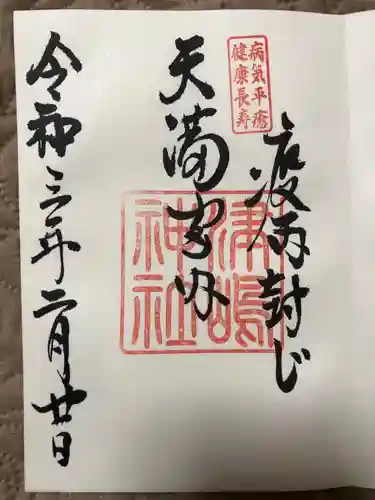 病気平癒
健康長寿
疫病封じ
天満宮内
津嶋
神社
令和三年二月廿日